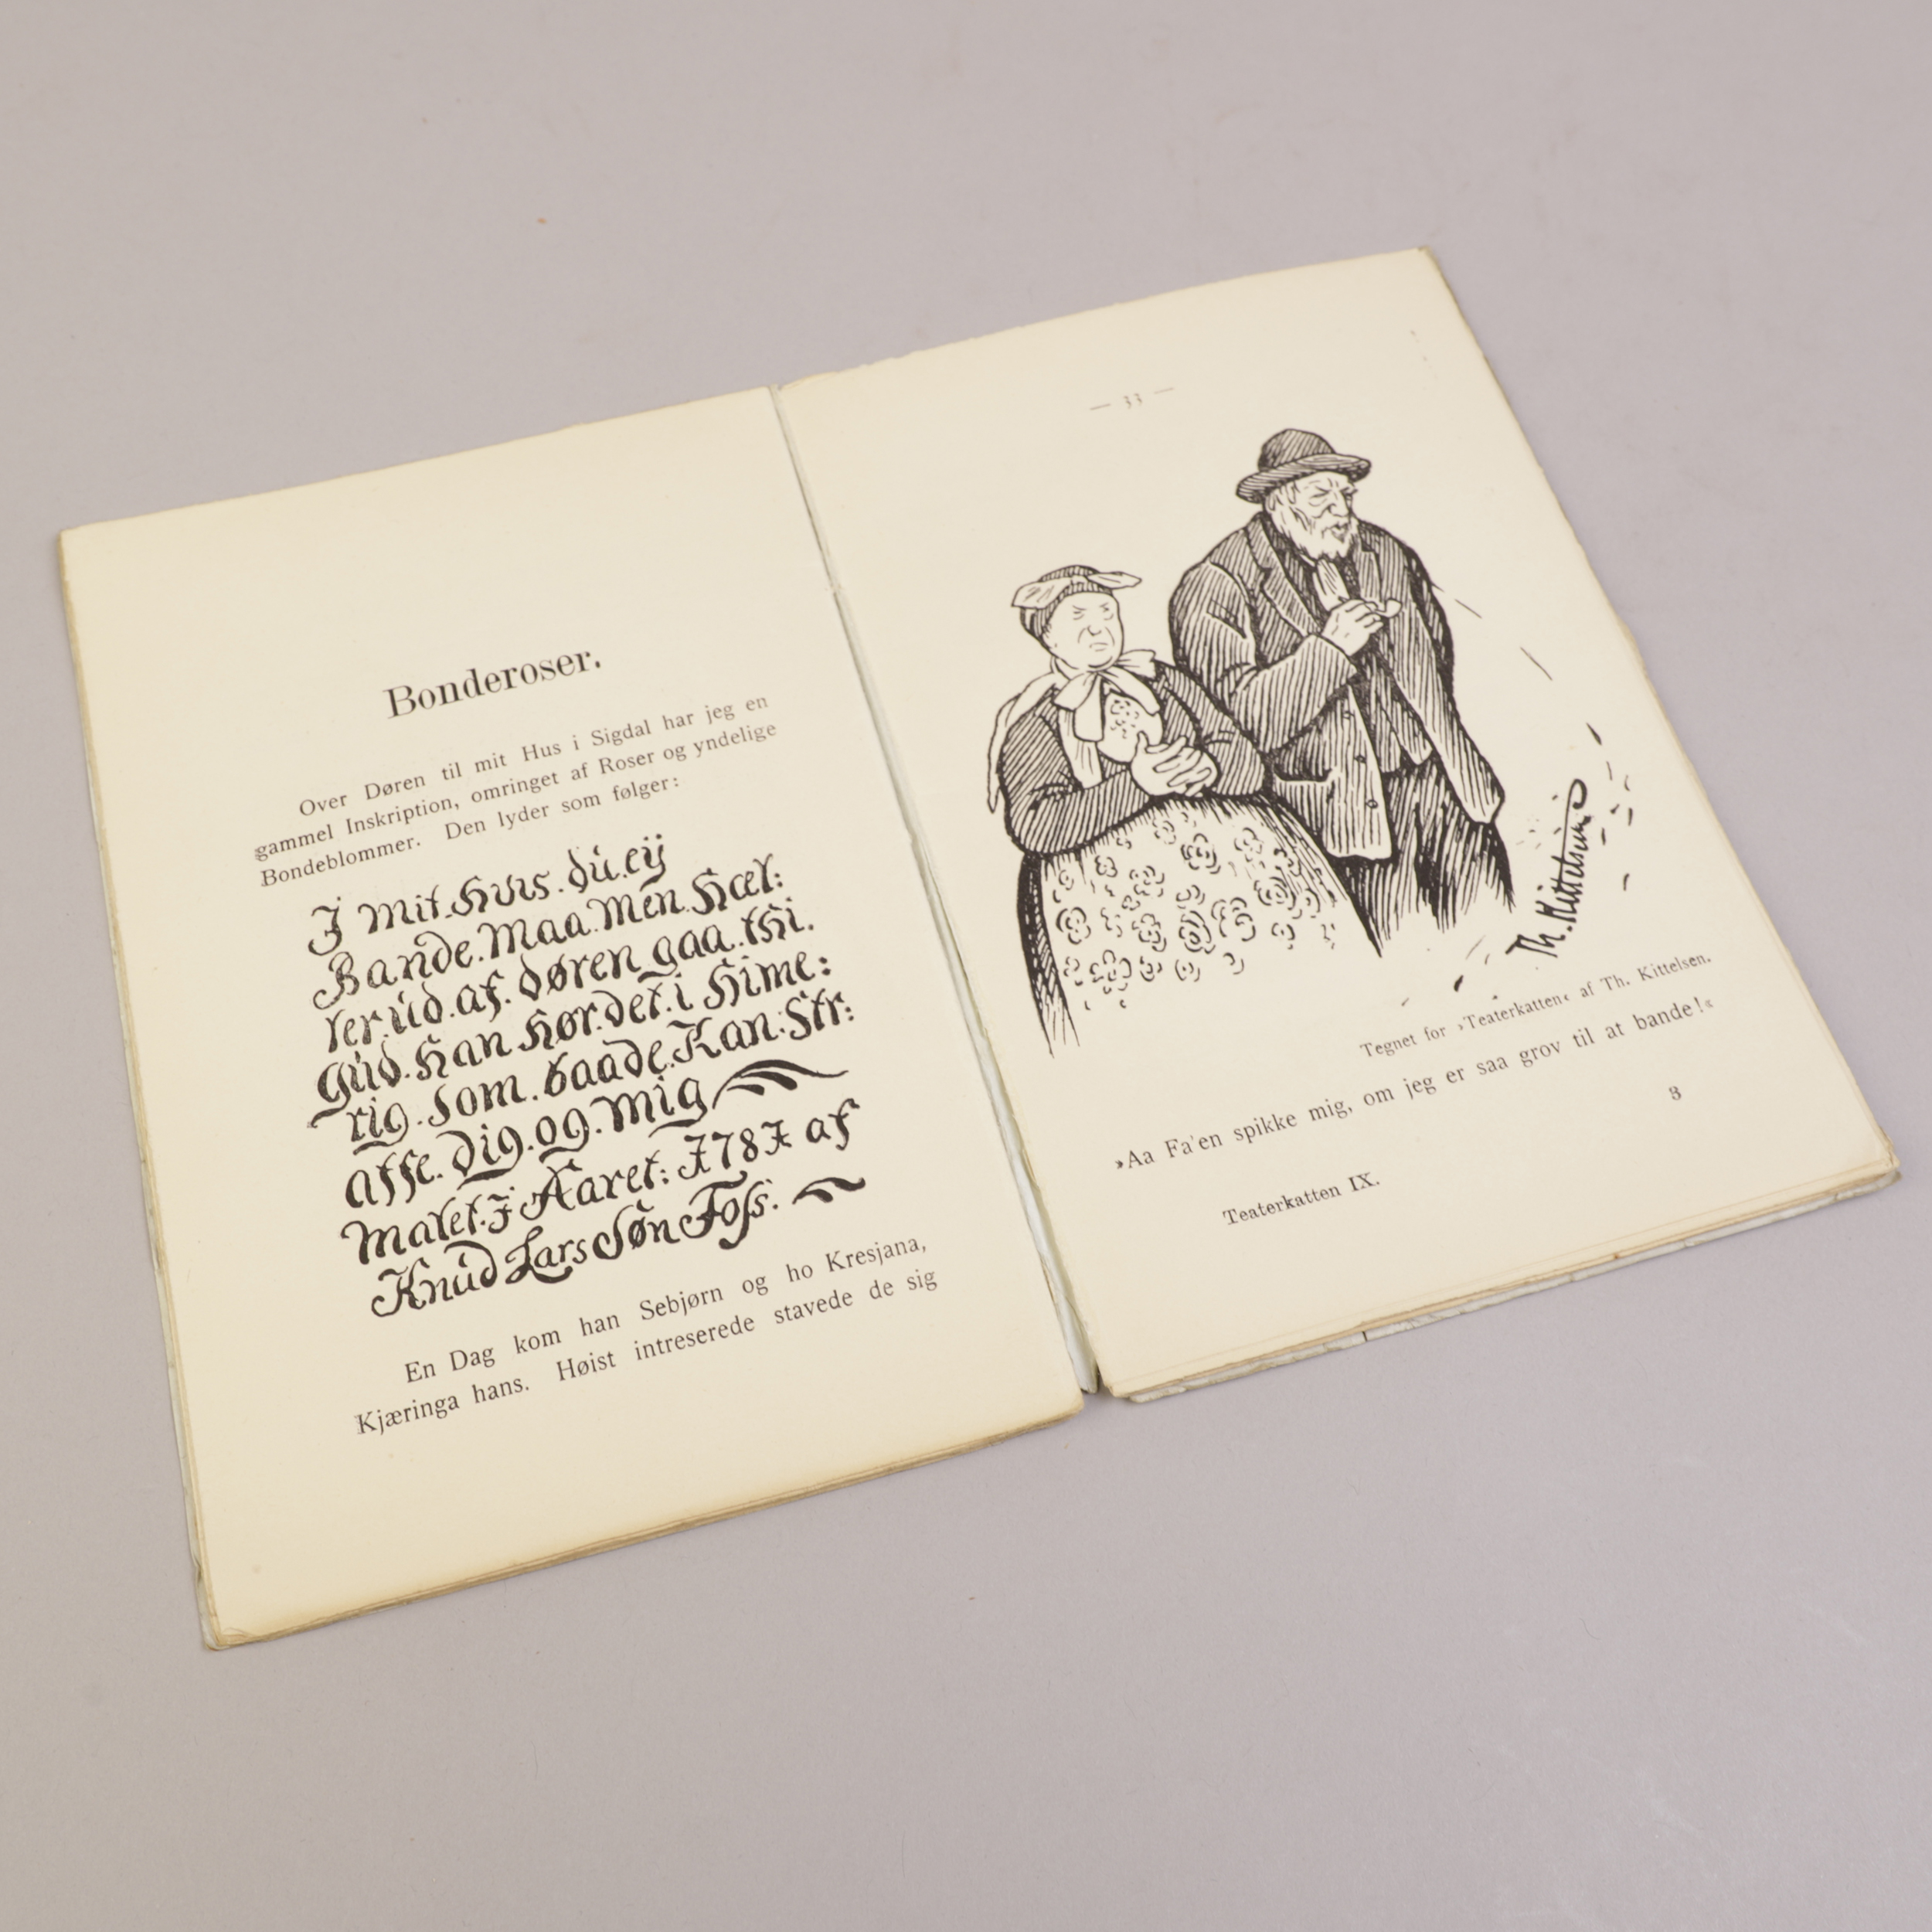 Bonderoser.
Over Døren til mit Hus i Sigdal har jeg en
gammel Inskription, omringet af Roser og yndelige
Bondeblommer. Den lyder som følger:
I mit.Huus.du.eÿ
Bande.maa.men.Hæl:
ler.ud.af.døren.gaa.thi.
Gud.Han.Hør.det.i Hime:
rig.som.baade.Kan.Str:
affe.dig.og.mig
malet.I Aaret: 1787 af
Knud Lars Søn Foss.
En Dag kom han Sebjørn og ho Kresjana,
Kjæringa hans. Høist intreserede stavede de sig
— 33 —
Th. Kittelsen
Tegnet for »Teaterkatten« af Th. Kittelsen.
»Aa Fa'en spikke mig, om jeg er saa grov til at bande!«
Teaterkatten IX.
3